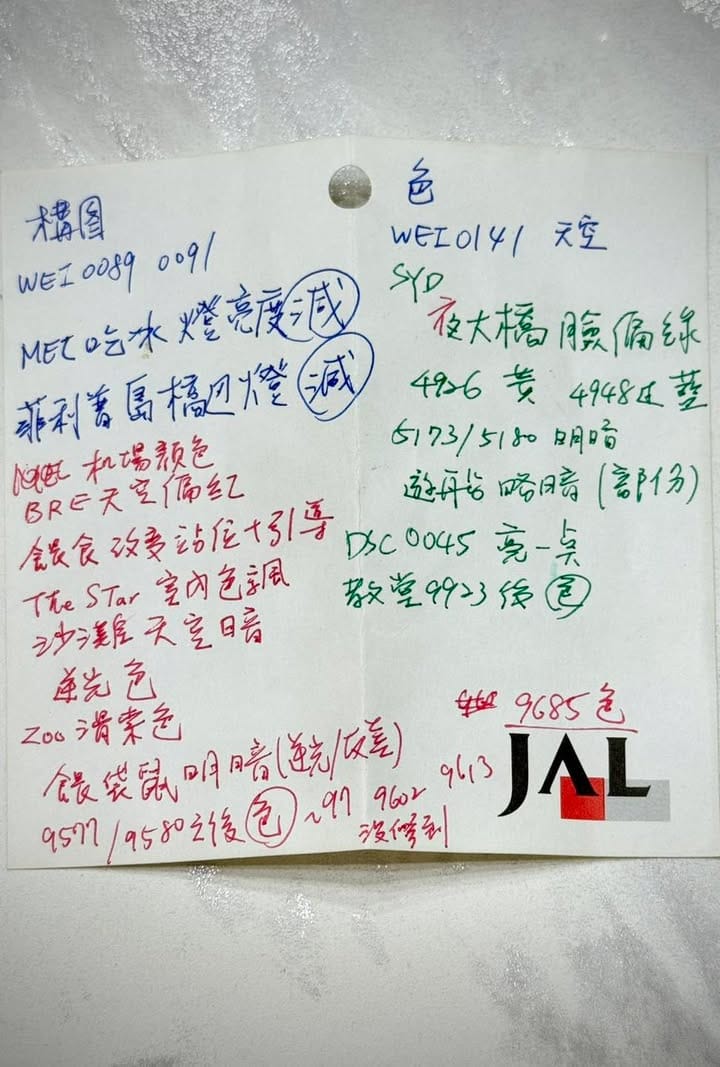 構图
WEI 0089 0091
MEL 吃冰 燈亮度減
菲利普島橋边燈 減
机場顏色
BRE 天空偏紅
餵食 改变站位+引導
The STar 室內色調
沙漠 天空暗
逆光 色
Zoo 滑索色
餵袋鼠 明暗(逆光/反差)
9577/9580之後 色 ~97 9602
沒修到
9613
色
WEI 0141 天空
SYD
夜大橋 臉偏綠
4926 黄 4948 藍
5173/5180 明暗
遊船 略暗 (部份)
DSC 0045 亮一点
教堂 9923 後 色
9685 色
JAL